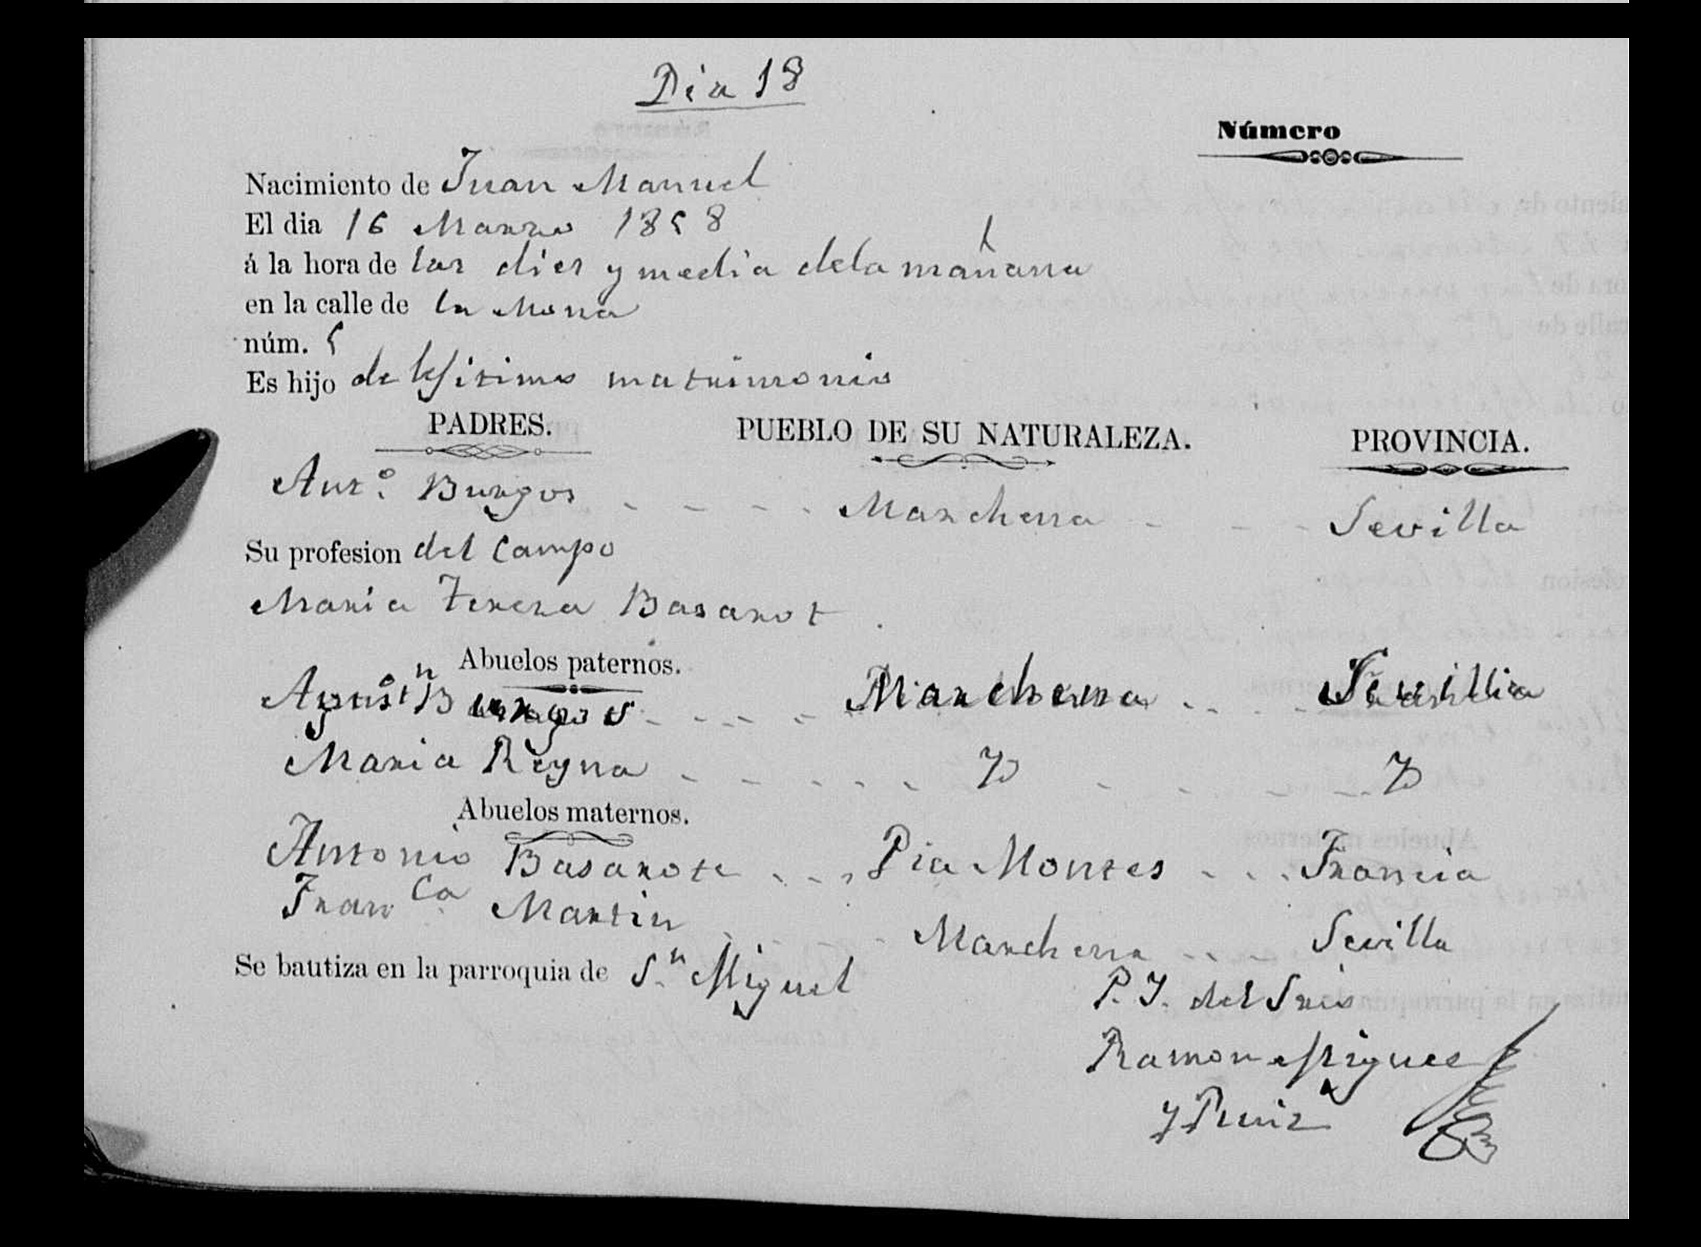 Dia 18
Número
Nacimiento de Juan Manuel
El dia 16 Marzo 1858
á la hora de las dies y media dela mañana
en la calle de la Mona
núm. 5
Es hijo de lejitimo matrimonio
PADRES. PUEBLO DE SU NATURALEZA. PROVINCIA.
Antº. Burgos - - - - Marchena - - - Sevilla
Su profesion del Campo
Maria Tereza Basarot
Abuelos paternos.
Agustn Burgos - - - - Marchena - - - Sevilla
Maria Reyna - - - - - Yd - - - - - Yd
Abuelos maternos.
Antonio Basarote - - - Pia Montes - - - Francia
Franca. Martin - - - Marchena - - - Sevilla
Se bautiza en la parroquia de Sn. Miguel
P. Y. del Sris
Ramon Migues
y Ruiz